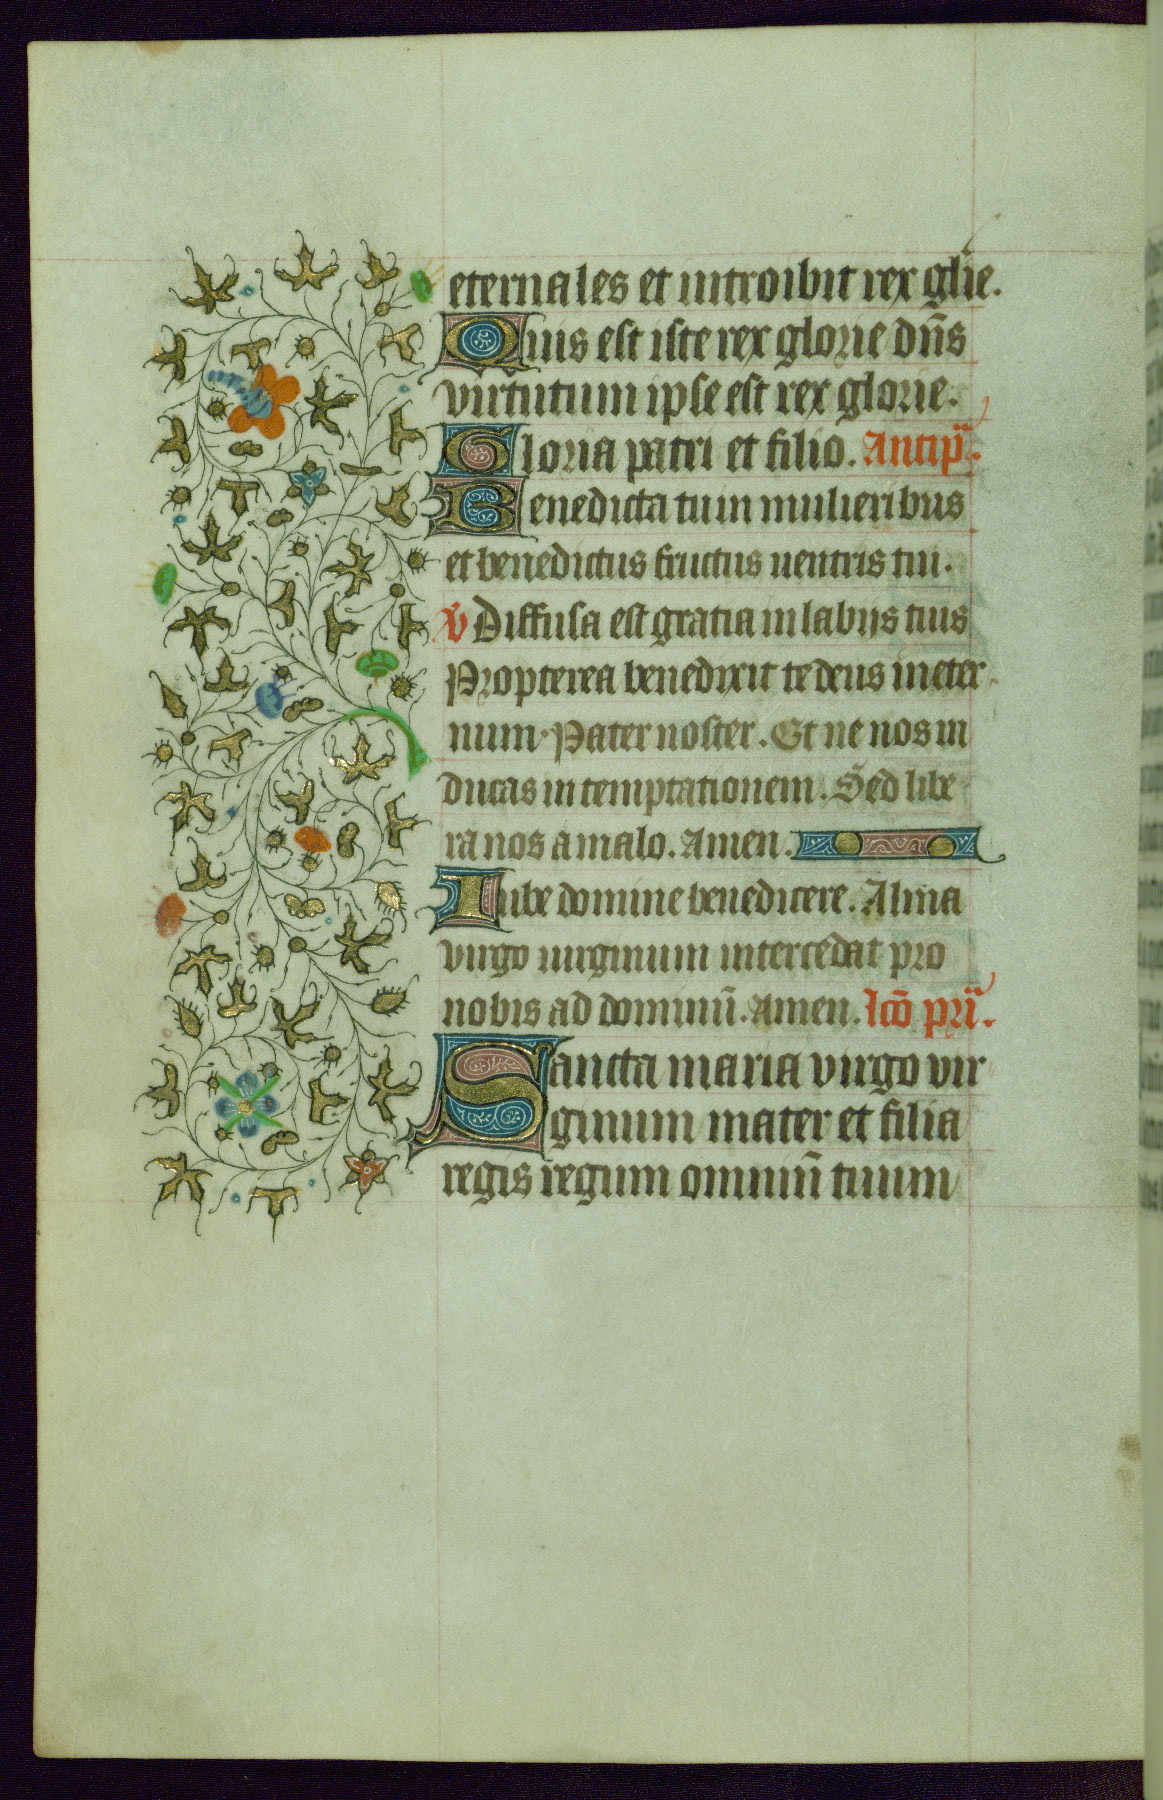 eternales et introibit rex gl̄ie.
Quis est iste rex glorie dn̄s
virtutum ipse est rex glorie.
Gloria patri et filio. Antip̄.
Benedicta tu in mulieribus
et benedictus fructus uentris tui.
v̄ Diffusa est gratia in labijs tuis
Propterea benedixit te deus in eter
num. Pater noster. Et ne nos in
ducas in temptationem. Sed libe
ra nos a malo. Amen.
Iube domine benedicere. Alma
virgo uirginum intercedat pro
nobis ad dominū. Amen. lcō pri̅.
Sancta maria virgo vir
ginum mater et filia
regis regum omniū tuum